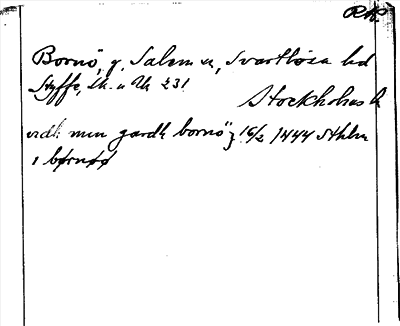 RAp
Bornö, g. Salem sn, Svartlösa hd
Styffe, Sk. u Un 231
Stockholms l.
vdh min gardh bornö} 16/2 1444 Sthlm
i bornøø